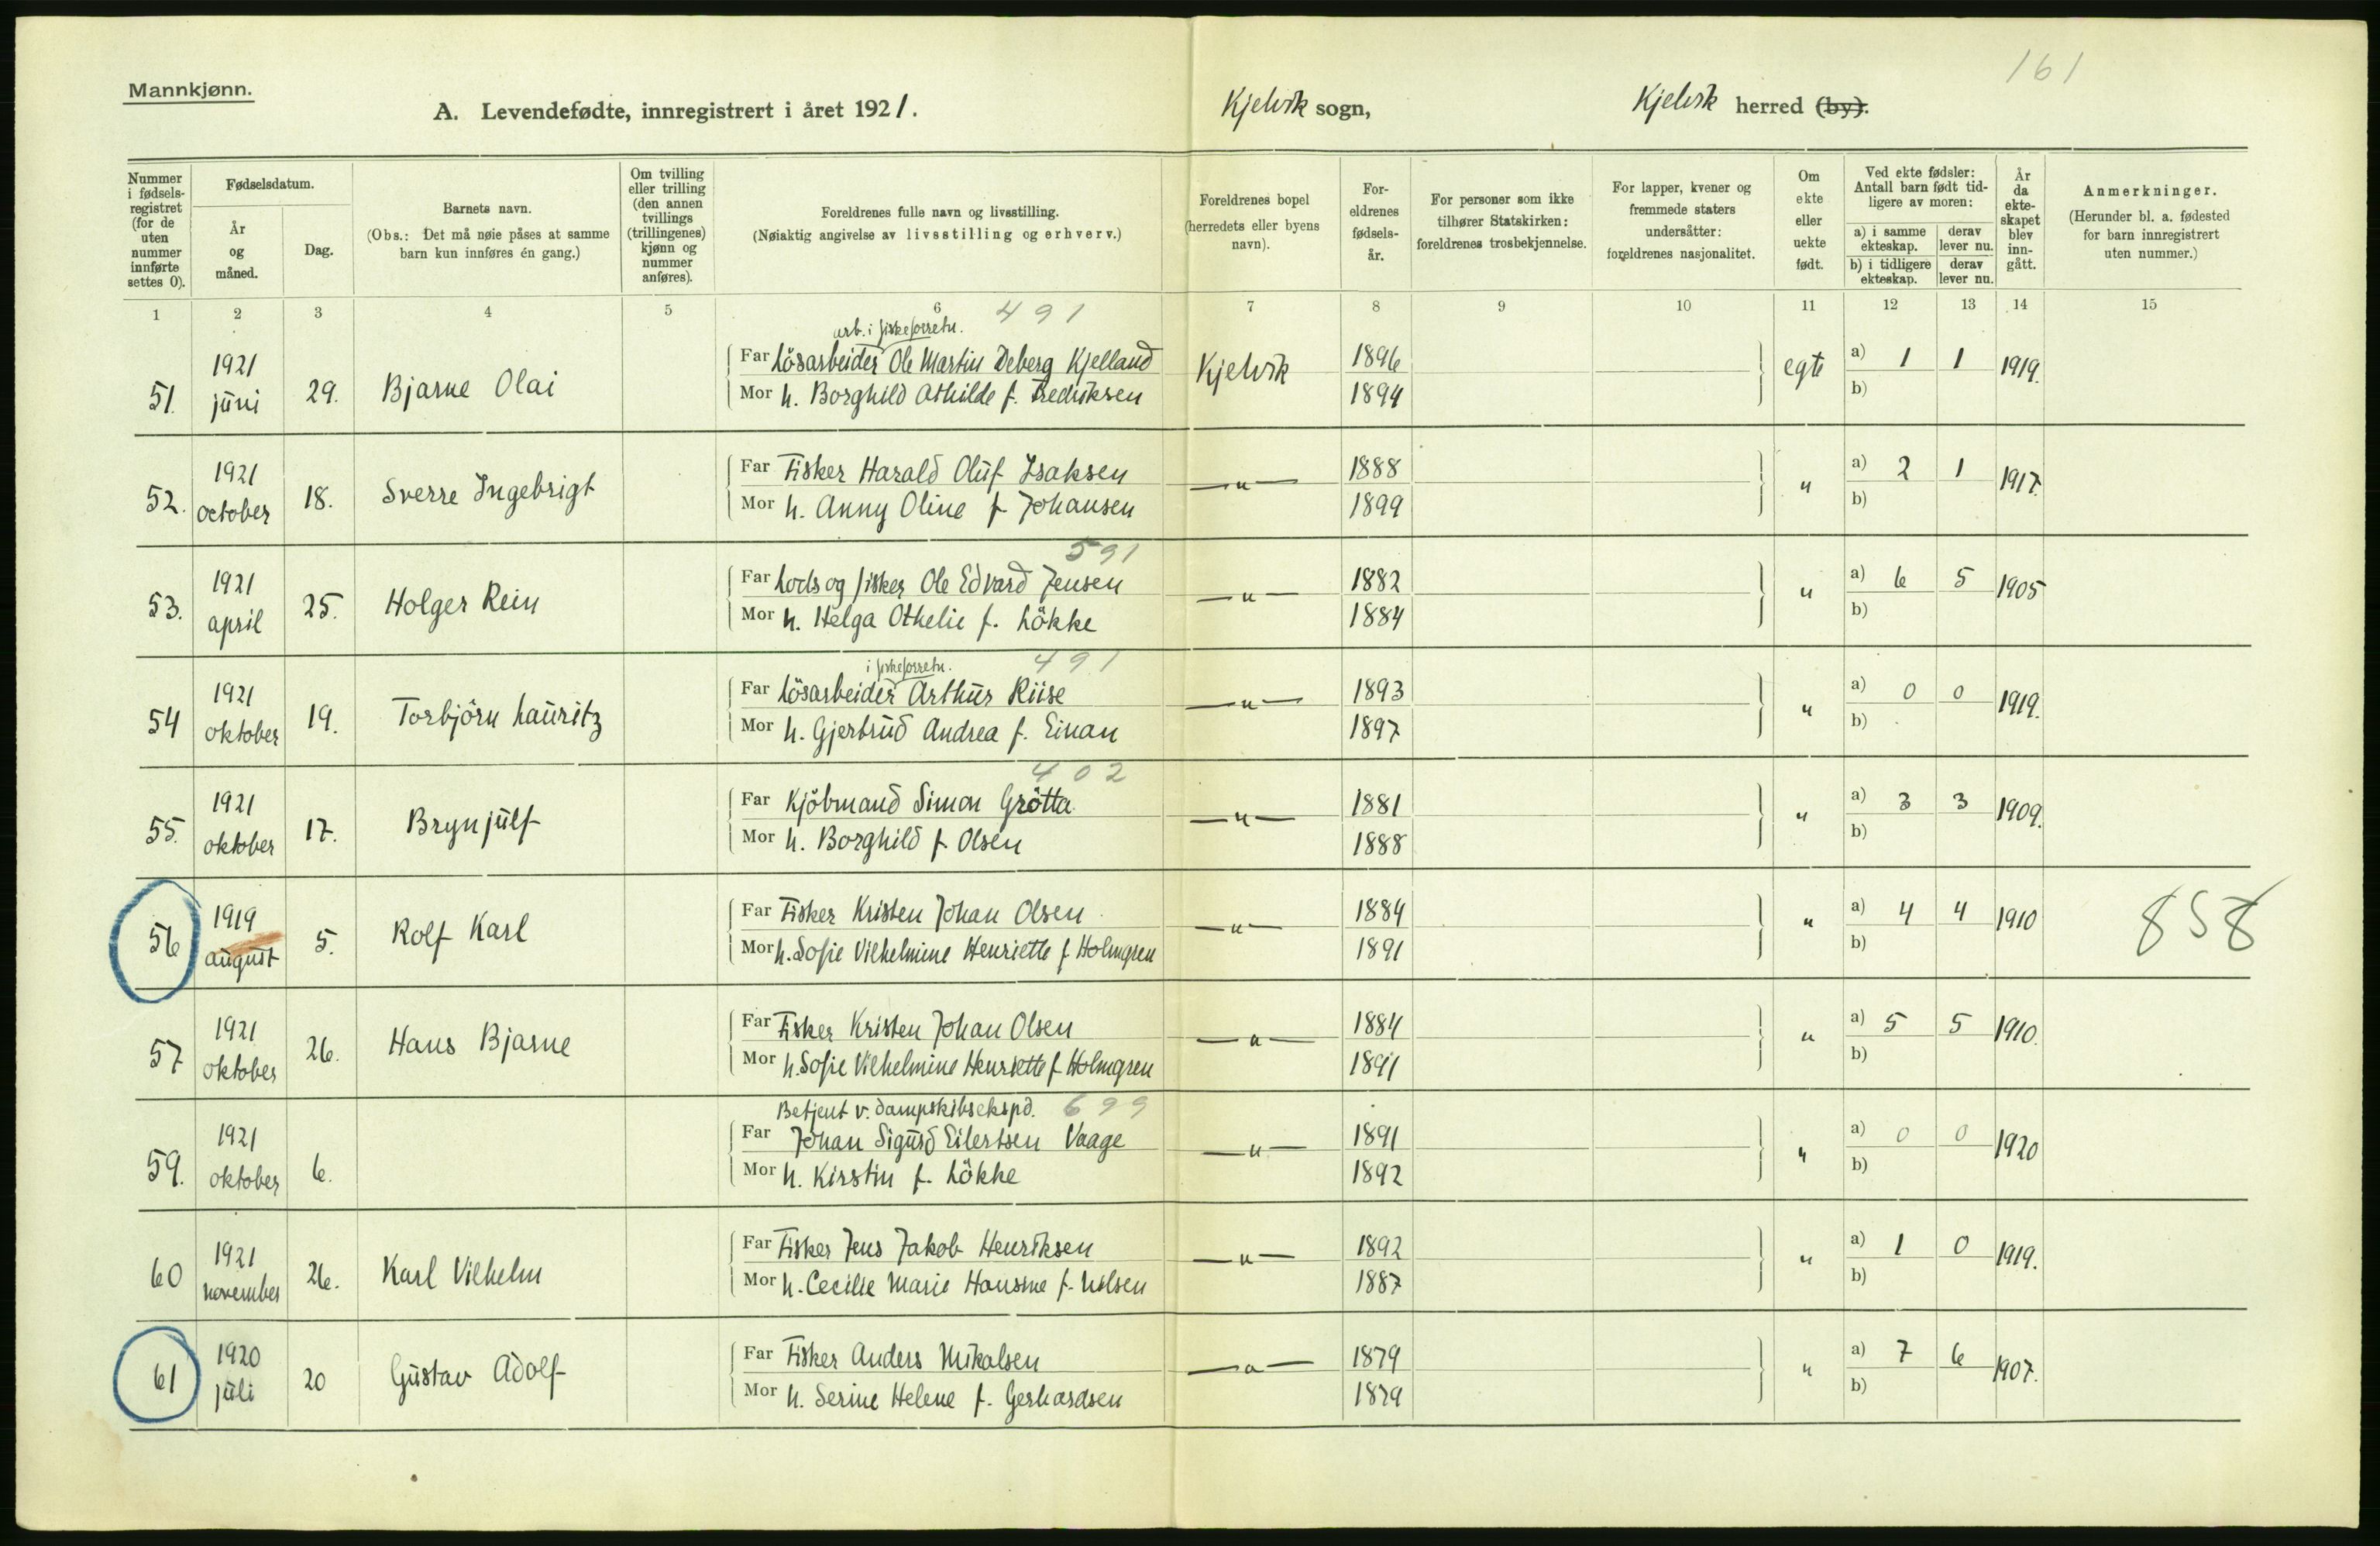 161
Mannkjønn.
A. Levendefødte, innregistrert i året 1921. Kjelvik sogn, Kjelvik herred (by).
Nummer i fødsels-registret (for de uten nummer innførte settes 0).
Fødselsdatum.
År og måned.
Dag.
Barnets navn.
(Obs.: Det må nøie påses at samme barn kun innføres én gang.)
Om tvilling eller trilling (den annen tvillings (trillingenes) kjønn og nummer anføres).
Foreldrenes fulle navn og livsstilling.
(Nøiaktig angivelse av livsstilling og erhverv.)
Foreldrenes bopel (herredets eller byens navn).
For-eldrenes fødsels-år.
For personer som ikke tilhører Statskirken: foreldrenes trosbekjennelse.
For lapper, kvener og fremmede staters undersåtter: foreldrenes nasjonalitet.
Om ekte eller uekte født.
Ved ekte fødsler: Antall barn født tid-ligere av moren:
a) i samme ekteskap. derav lever nu.
b) i tidligere ekteskap. derav lever nu.
År da ekte-skapet blev inn-gått.
Anmerkninger.
(Herunder bl. a. fødested for barn innregistrert uten nummer.)
1 2 3 4 5 6 7 8 9 10 11 12 13 14 15
arb. i fiskeforretn. 491
51. 1921 juni 29. Bjarne Olai Far Lösarbeider Ole Martin Deberg Kjelland Kjelvik 1896 egte a) 1 1 1919.
Mor h. Borghild Athilde f. Fredriksen 1894 b)
52. 1921 october 18. Sverre Ingebrigt Far Fisker Harald Oluf Isaksen — " — 1888 " a) 2 1 1917.
Mor h. Anny Oline f Johansen 1899 b)
591
53. 1921 april 25. Holger Rein Far Lods og fisker Ole Edvard Jensen — " — 1882 " a) 6 5 1905
Mor h. Helga Othelie f. Lökke 1884 b)
i fiskeforretn. 491
54 1921 oktober 19. Torbjörn Lauritz Far Lösarbeider Arthur Riise — " — 1893 " a) 0 0 1919.
Mor h. Gjertrud Andrea f. Einan 1897 b)
402
55. 1921 oktober 17. Brynjulf Far Kjöbmand Simon Grötta — " — 1881 " a) 3 3 1909.
Mor h. Borghild f. Olsen 1888 b)
56 1919 august 5. Rolf Karl Far Fisker Kristen Johan Olsen — " — 1884 " a) 4 4 1910 858
Mor h. Sofie Vilhelmine Henriette f Holmgren 1891 b)
57 1921 oktober 26. Hans Bjarne Far Fisker Kristen Johan Olsen — " — 1884 " a) 5 5 1910.
Mor h. Sofie Vilhelmine Henriette f Holmgren 1891 b)
Betjent v. dampskibsekspd. 699
59. 1921 oktober 6. Far Johan Sigurd Eilertsen Vaage — " — 1891 " a) 0 0 1920
Mor h. Kirstin f. Lökke 1892 b)
60 1921 november 26. Karl Vilhelm Far Fisker Jens Jakob Henriksen — " — 1892 " a) 1 0 1919.
Mor h. Cecilie Marie Hansine f. Nilsen 1887 b)
61 1920 juli 20 Gustav Adolf Far Fisker Anders Mikalsen — " — 1879 " a) 7 6 1907.
Mor h. Serine Helene f. Gerhardsen 1879 b)